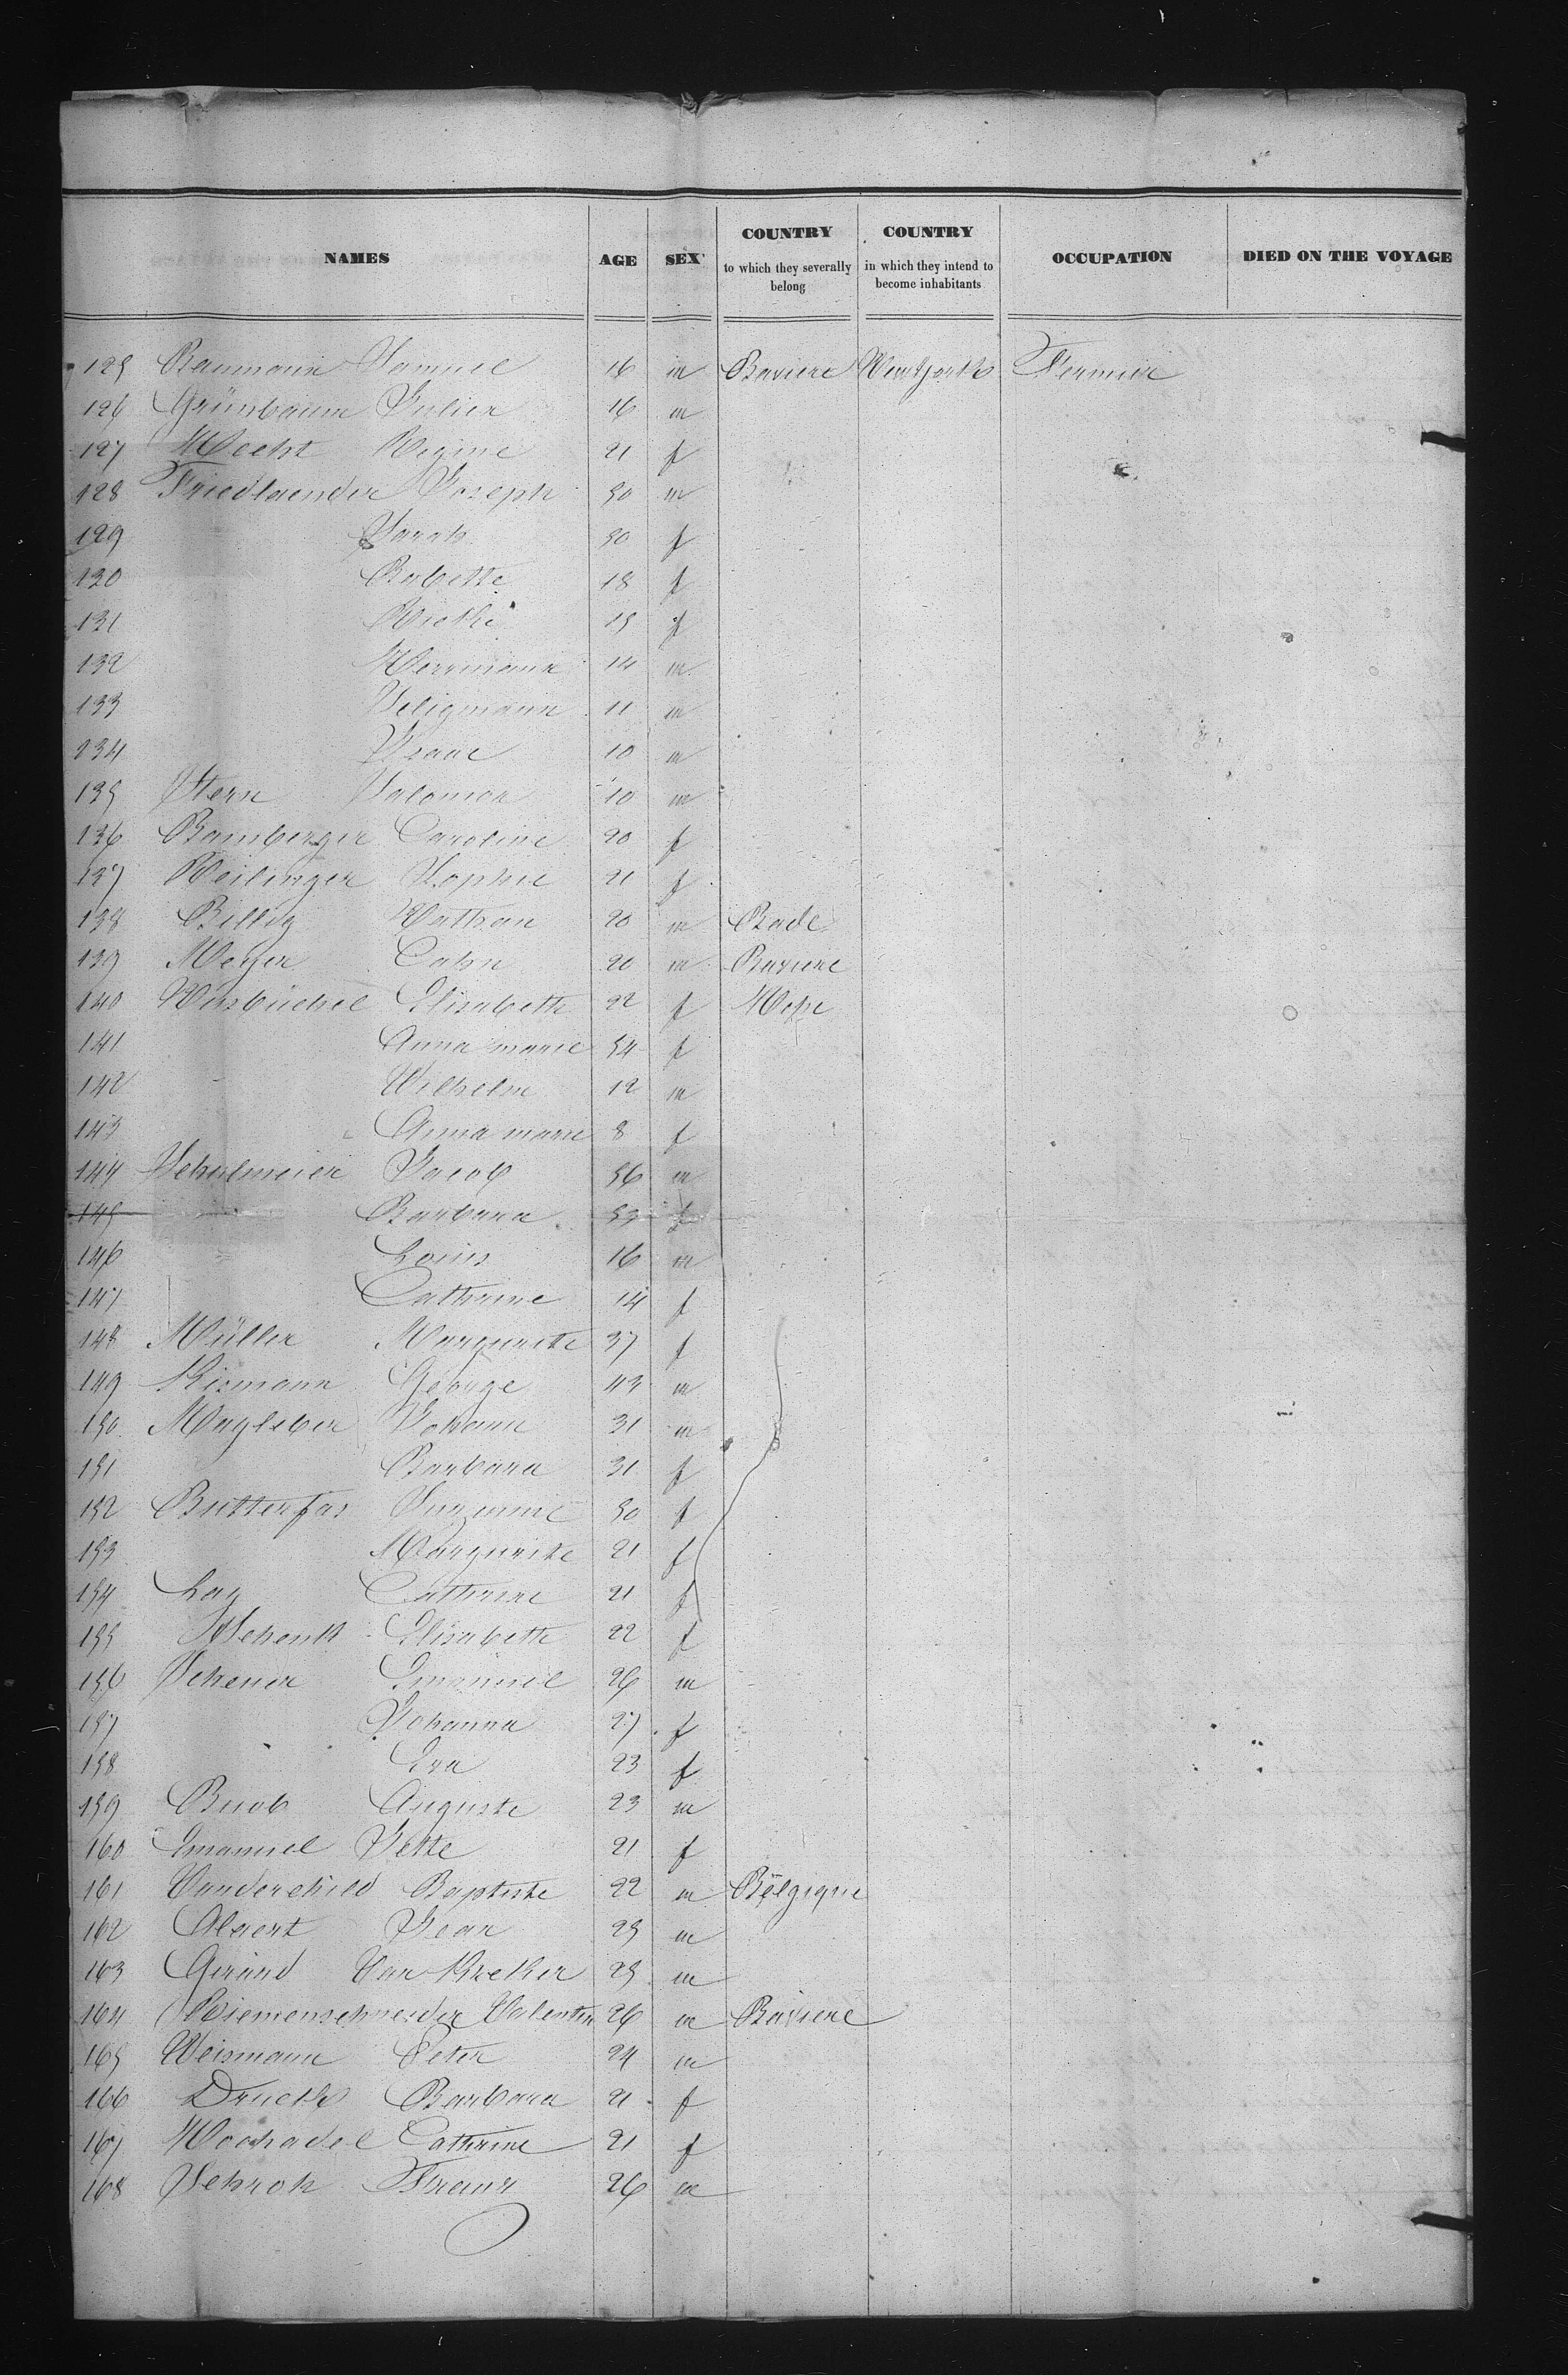 NAMES AGE SEX COUNTRY to which they severally belong COUNTRY in which they intend to become inhabitants OCCUPATION DIED ON THE VOYAGE
125 Baumann Samuel 16 m Baviere New York Fermier
126 Grünbaum Julier 16 m
127 Hecht Regine 21 f
128 Friedlaender Joseph 50 m
129 Sarah 50 f
130 Babette 18 f
131 15 f
132 Herrmann 14 m
133 Seligmann 11 m
134 Isaac 10 m
135 Stern Salomon 10 m
136 Bamberger Caroline 20 f
137 Reilinger Sophie 21 f
138 Billig Nathan 20 m Bade
139 Meyer Cahn 20 m Baviere
140 Elisabeth 22 f
141 Anna marie 54 f
142 Wilhelm 12 m
143 Anna marie 8 f
144 Schulmeier Jacob 56 m
145 Barbara 53 f
146 Louis 16 m
147 Catherine 14 f
148 Müller Marguerite 37 f
149 Kismann George 43 m
150 Johann 31 m
151 Barbara 31 f
152 Butterfas Suzanne 50 f
153 Marguerite 21 f
154 Lay Catherine 21 f
155 Schenk Elisabeth 22 f
156 Scheuer Emanuel 26 m
157 Johanna 27 f
158 Eva 23 f
159 Buob Auguste 23 m
160 Emanuel Jette 21 f
161 Vanderchild Baptiste 22 m Belgique
162 Jean 25 m
163 Gerard Van 25 m
164 Riemenschneider Valentin 26 m Baviere
165 Weismann Peter 24 m
166 Druck Barbara 21 f
167 Hochadel Catherine 21 f
168 Schroh Franz 26 m